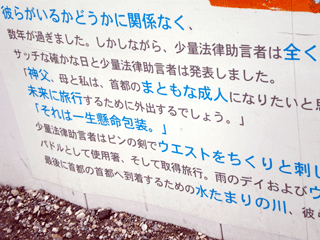 彼らがいるかどうかに関係なく、
数年が過ぎました。しかしながら、少量法律助言者は全く
サッチな確かな日と少量法律助言者は発表しました。
「神父、母と私は、首都のまともな成人になりたいと
未来に旅行するために外出するでしょう。」
「それは一生懸命包装。」
少量法律助言者はピンの剣でウエストをちくりと刺し
パドルとして使用署、そして取得旅行。雨のデイおよび
最後に首都の首都へ到着するための水たまりの川、彼